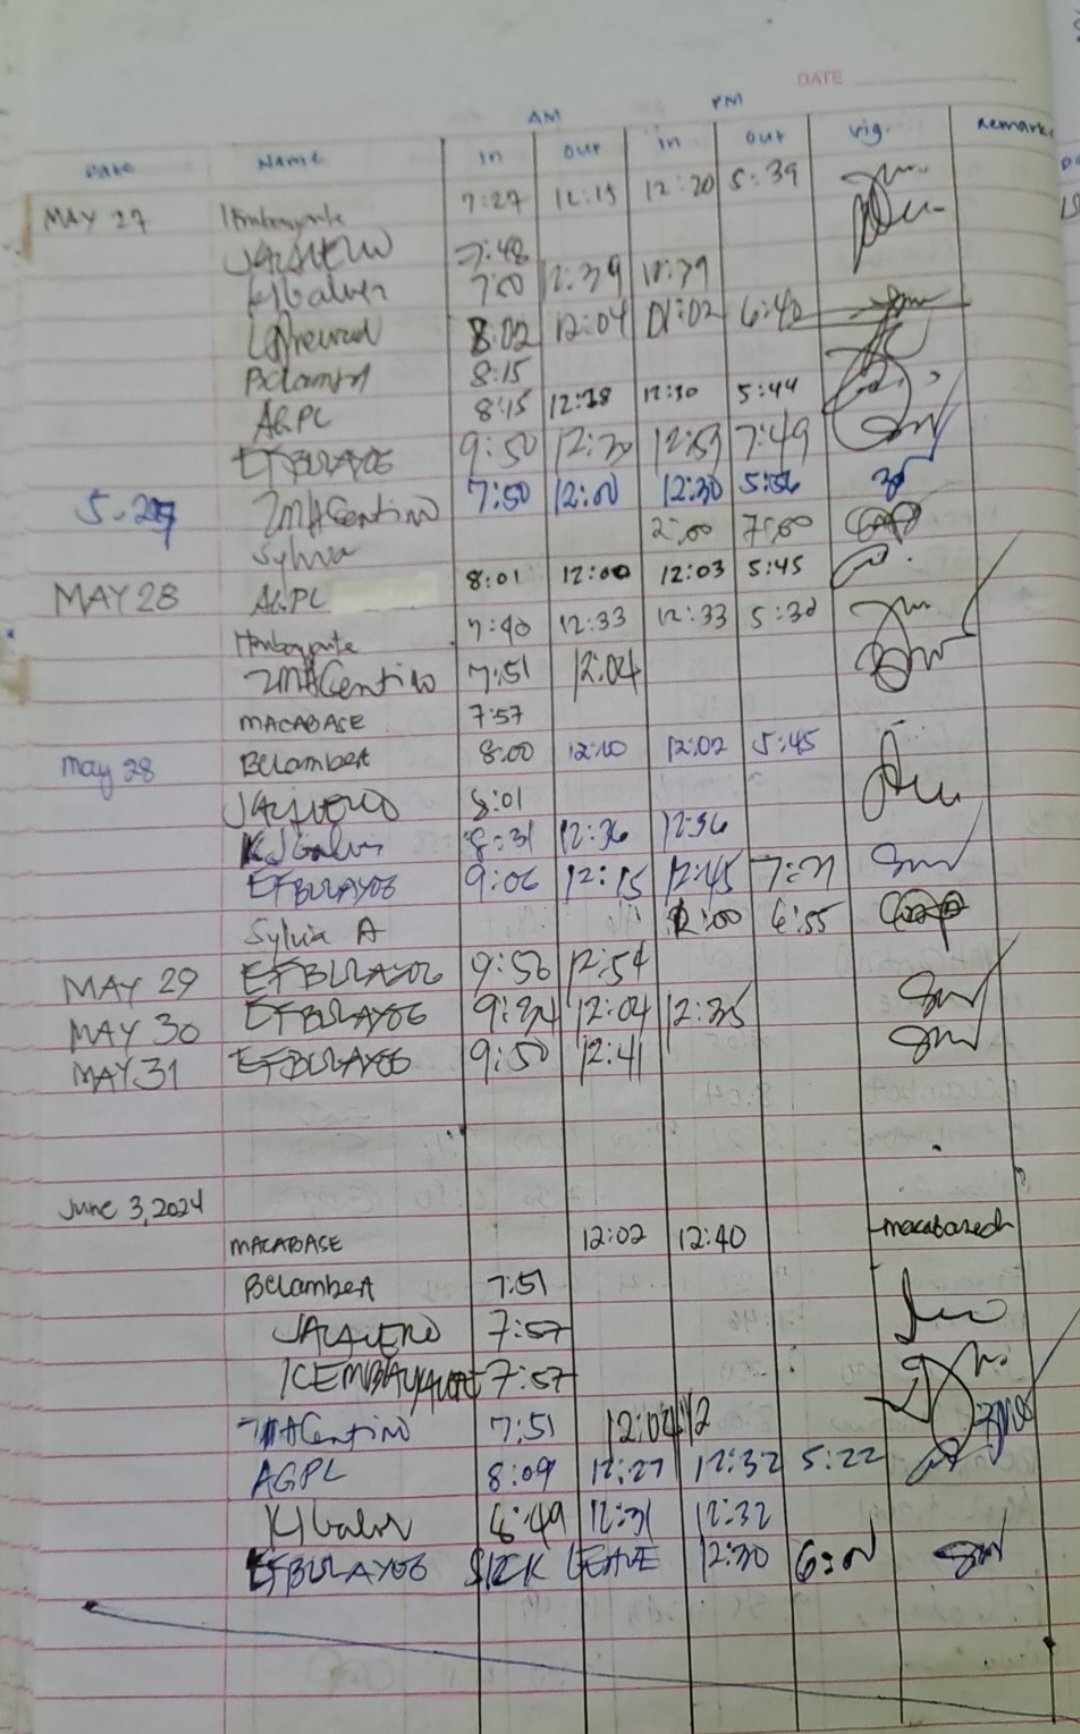 DATE
AM PM
Date Name in out in out sig. Remarks
MAY 27 7:27 12:15 12:20 5:39
JALAVERO 7:48
KJGalvis 7:50 12:39 12:39
8:02 12:04 01:02 6:42
BClambert 8:15
AGPL 8:15 12:38 12:30 5:44
EFBULAYOG 9:50 12:53 7:49
5-27 ZMACentino 7:50 12:00 12:30 5:56
Sylvia 2:00 7:00
MAY 28 AGPL 8:01 12:00 12:03 5:45
7:40 12:33 12:33 5:30
ZMACentino 7:51 12:04
MACABASE 7:57
may 28 BClambert 8:00 12:10 12:02 5:45
JALAVERO 8:01
KJGalvis 8:31 12:36 12:36
EFBULAYOG 9:06 12:15 12:45 7:21
Sylvia A 2:00 6:55
MAY 29 EFBULAYOG 9:56 12:54
MAY 30 EFBULAYOG 9:34 12:04 12:35
MAY 31 EFBULAYOG 9:50 12:41
June 3, 2024
MACABASE 12:02 12:40 macabasedh
BClambert 7:51
JALAVERO 7:57
7:57
ZMACentino 7:51 12:04 12
AGPL 8:09 12:27 12:32 5:22
KJGalvis 8:49 12:31 12:32
EFBULAYOG SICK LEAVE 12:30 6:00